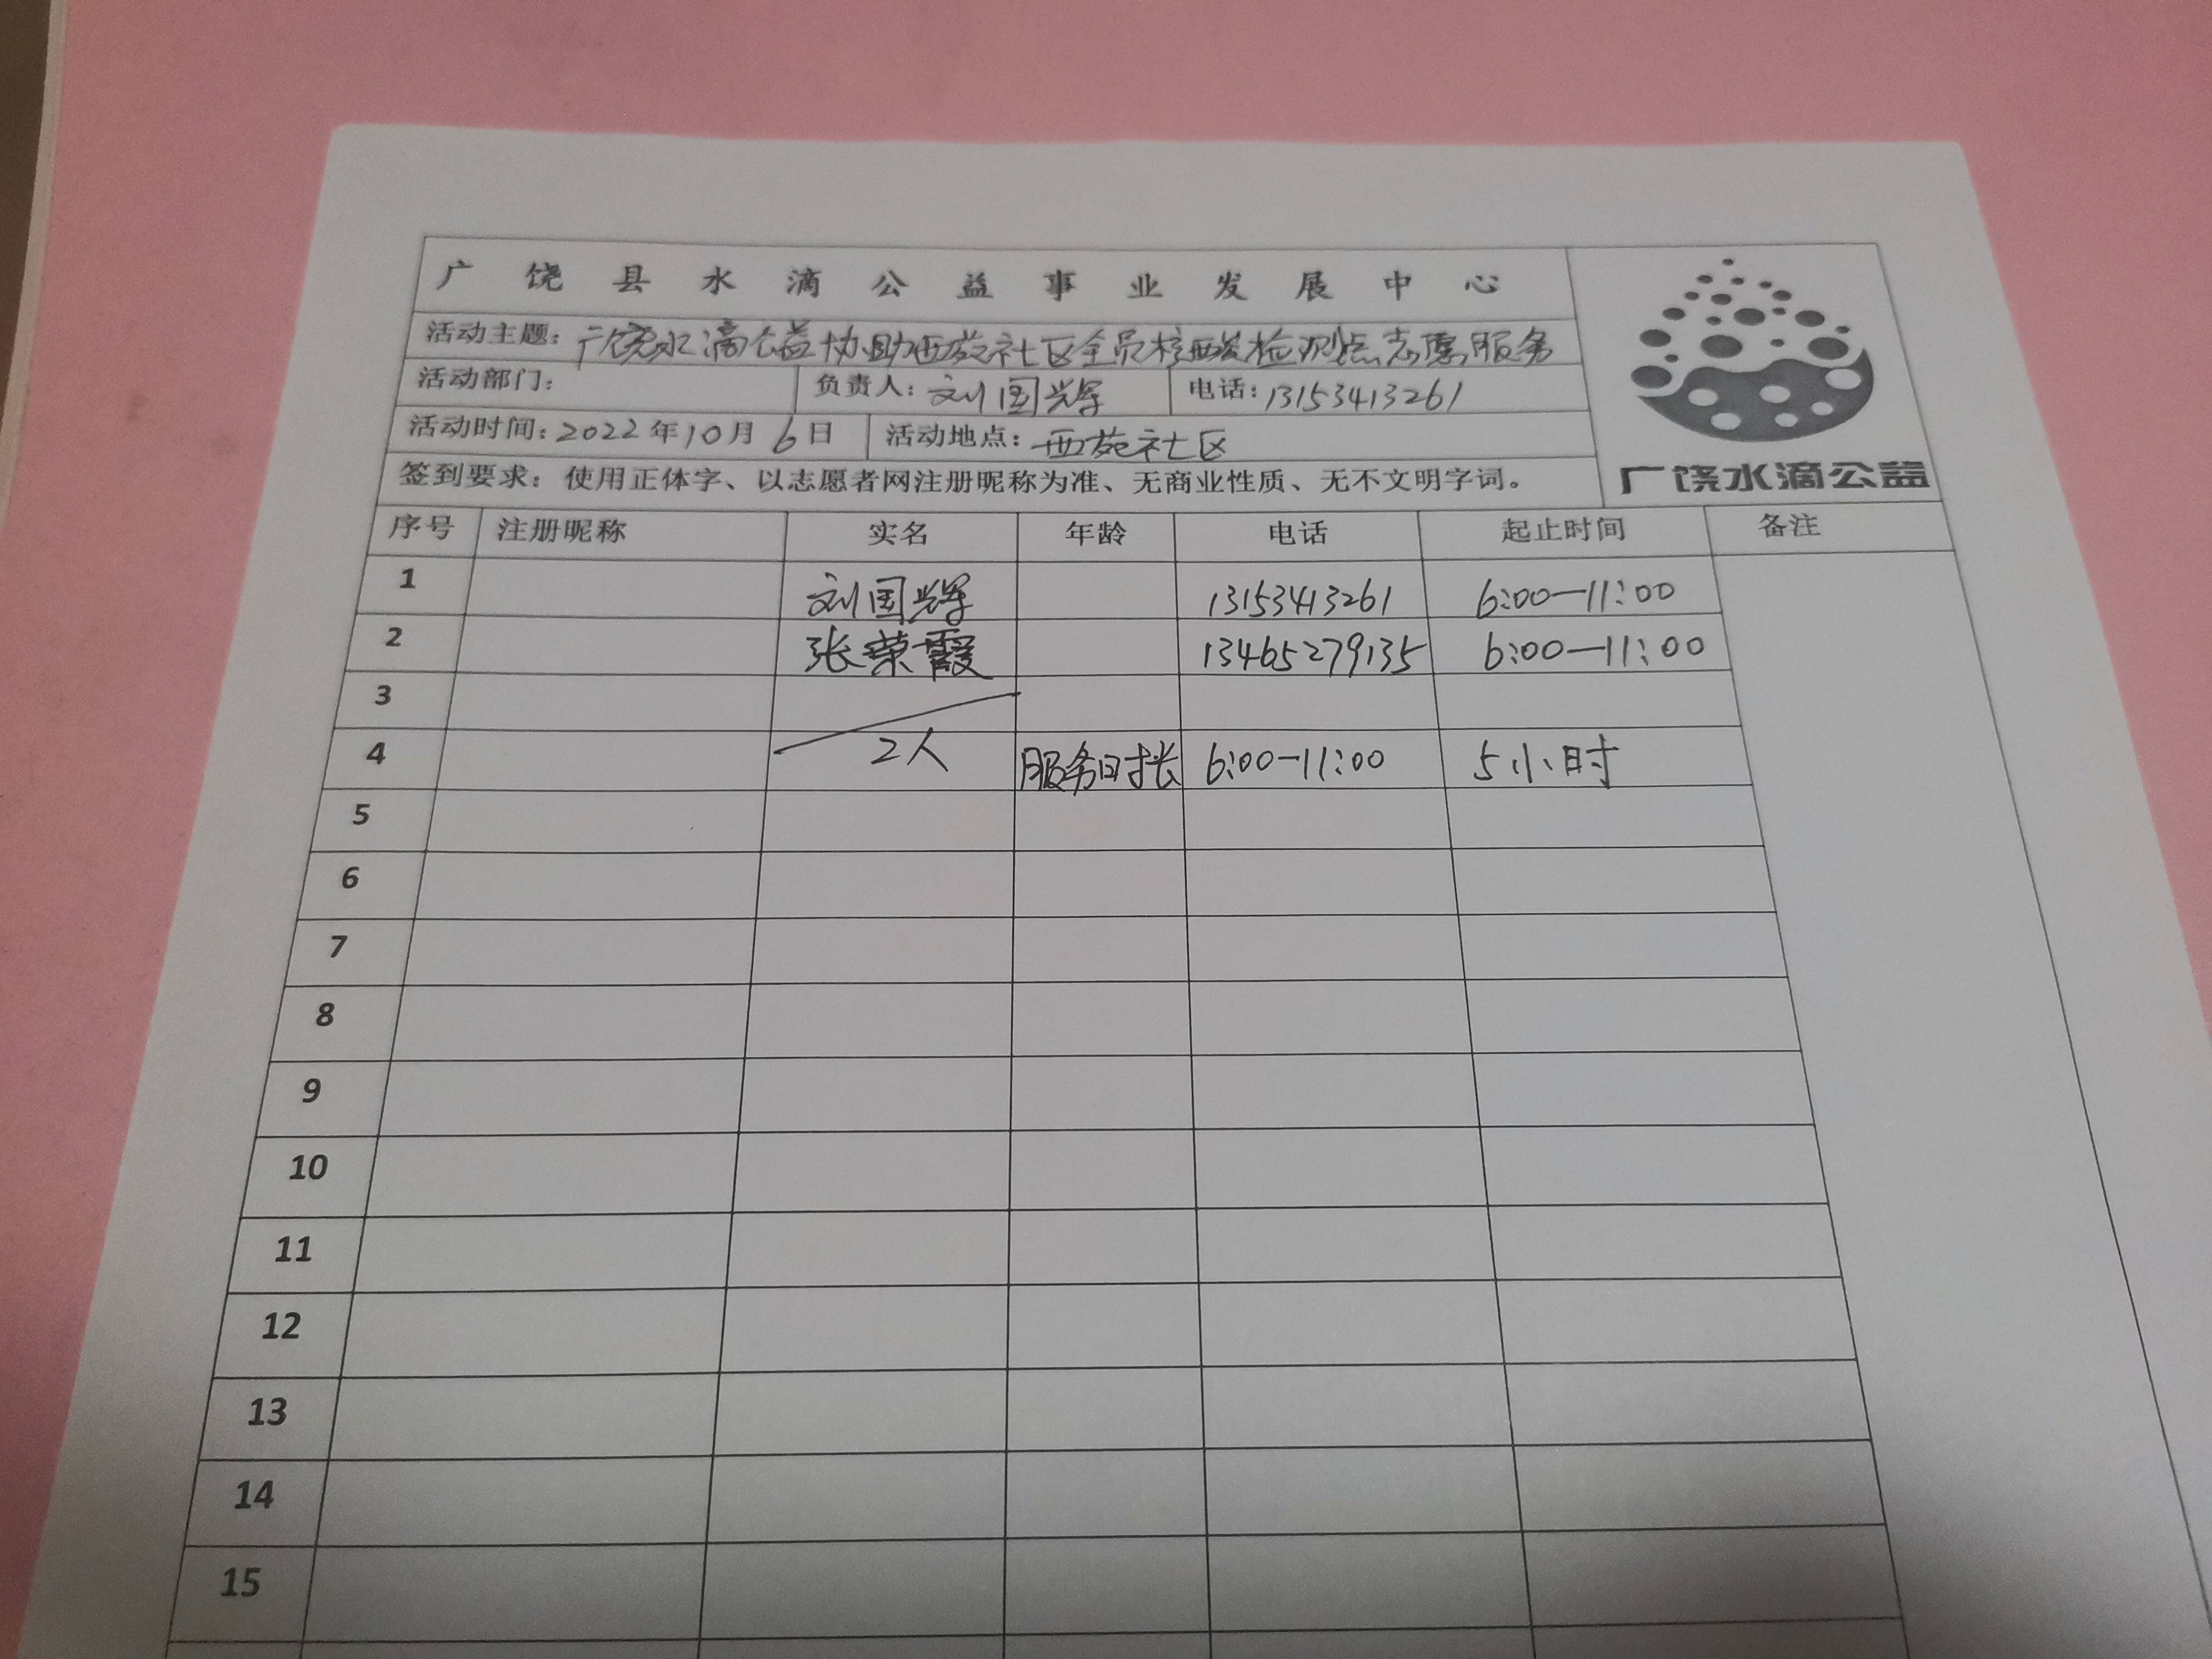 广饶县水滴公益事业发展中心
活动主题：广饶水滴公益协助西苑社区全员核酸检测点志愿服务
活动部门： 负责人：刘国辉 电话：13153413261
活动时间：2022年10月6日 活动地点：西苑社区
签到要求：使用正体字、以志愿者网注册昵称为准、无商业性质、无不文明字词。
广饶水滴公益
序号 注册昵称 实名 年龄 电话 起止时间 备注
1 刘国辉 13153413261 6:00—11:00
2 张荣霞 13465279135 6:00—11:00
3
4 2人 服务时长 6:00-11:00 5小时
5
6
7
8
9
10
11
12
13
14
15